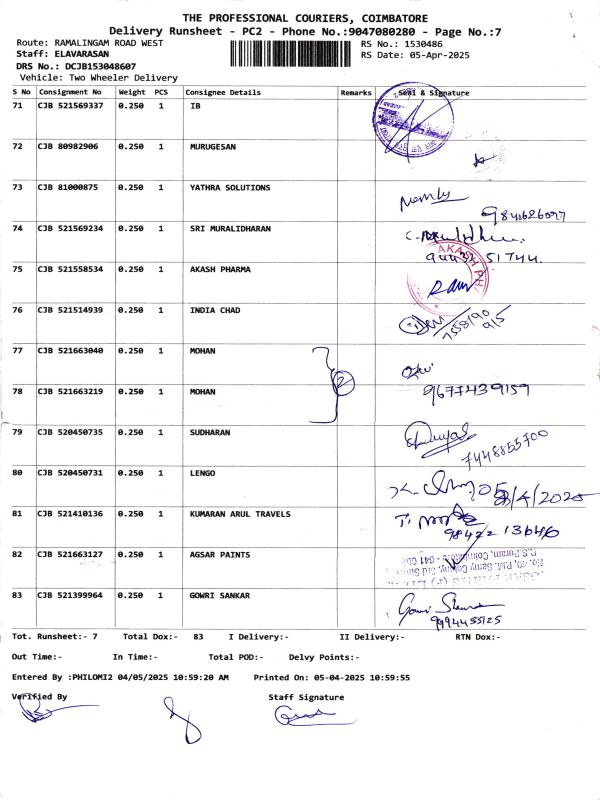 THE PROFESSIONAL COURIERS, COIMBATORE
Delivery Runsheet - PC2 - Phone No.:9047080280 - Page No.:7
Route: RAMALINGAM ROAD WEST RS No.: 1530486
Staff: ELAVARASAN RS Date: 05-Apr-2025
DRS No.: DCJB153048607
Vehicle: Two Wheeler Delivery
S No Consignment No Weight PCS Consignee Details Remarks Seal & Signature
71 CJB 521569337 0.250 1 IB
72 CJB 80982906 0.250 1 MURUGESAN
73 CJB 81000875 0.250 1 YATHRA SOLUTIONS
74 CJB 521569234 0.250 1 SRI MURALIDHARAN
75 CJB 521558534 0.250 1 AKASH PHARMA
AKASH PH
76 CJB 521514939 0.250 1 INDIA CHAD
77 CJB 521663040 0.250 1 MOHAN
2
78 CJB 521663219 0.250 1 MOHAN 9677439159
79 CJB 520450735 0.250 1 SUDHARAN
7448855700
80 CJB 520450731 0.250 1 LENGO
81 CJB 521410136 0.250 1 KUMARAN ARUL TRAVELS
98422 13646
82 CJB 521663127 0.250 1 AGSAR PAINTS
No. 40, P.M. Samy Colony, 3rd Street
R.S.Puram, Coimbatore - 641 002
83 CJB 521399964 0.250 1 GOWRI SANKAR
9994455125
Tot. Runsheet:- 7 Total Dox:- 83 I Delivery:- II Delivery:- RTN Dox:-
Out Time:- In Time:- Total POD:- Delvy Points:-
Entered By :PHILOMI2 04/05/2025 10:59:20 AM Printed On: 05-04-2025 10:59:55
Verified By Staff Signature